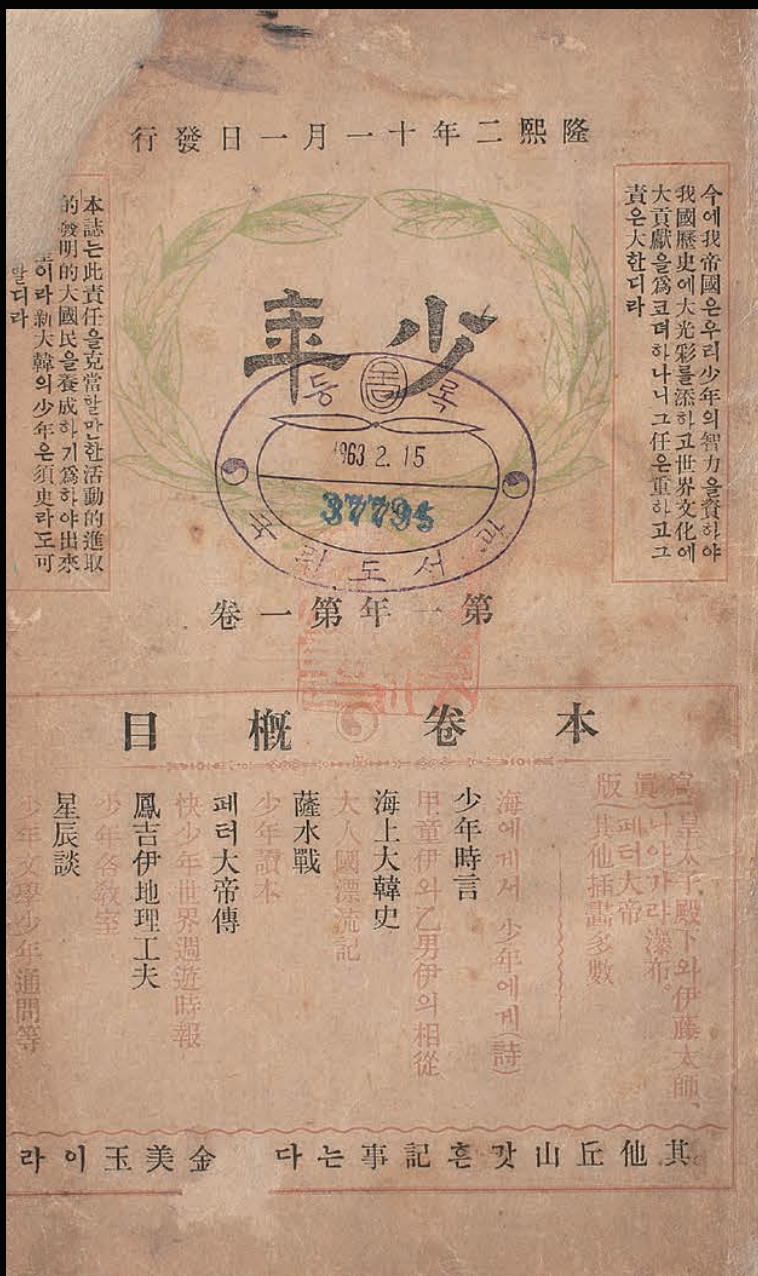 隆熙二年十一月一日發行
今에我帝國은우리少年의智力을資하야
我國歷史에大光彩를添하고世界文化에
大貢獻을爲코뎌하나니그任은重하고그
責은大한디라
少年
本誌는此責任을克當할만한活動的進取
的發明的大國民을養成하기爲하야出來
이라新大韓의少年은須臾라도可
할디라
등록
1963. 2. 15
37795
도서관
第一年第一卷
本卷槪目
寫眞版
皇太子殿下와伊藤太師、
나이아가라瀑布。
페터大帝
其他揷畵多數
海에게서 少年에게(詩)
少年時言
甲童伊와乙男伊의相從
海上大韓史
大人國漂流記
薩水戰
少年讀本
페터大帝傳
快少年世界週遊時報
鳳吉伊地理工夫
少年各敎室
星辰談
少年文學少年通問等
其他丘山갓흔記事는다 金美玉이라